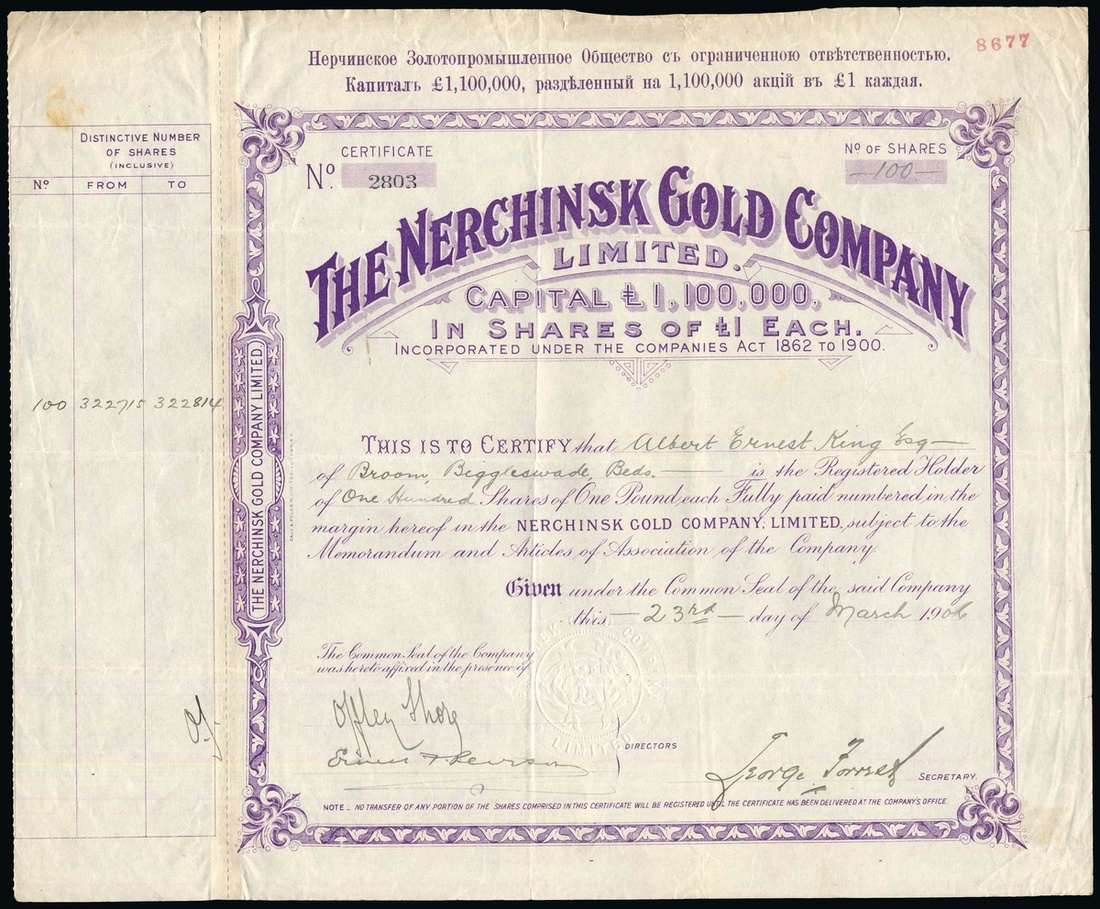 8677
Нерчинское Золотопромышленное Общество съ ограниченною отвѣтственностью.
Капиталъ £1,100,000, раздѣленный на 1,100,000 акцій въ £1 каждая.
DISTINCTIVE NUMBER
OF SHARES
(INCLUSIVE)
Nº FROM TO
100 322715 322814
THE NERCHINSK GOLD COMPANY LIMITED.
CERTIFICATE
Nº 2803
Nº OF SHARES
—100—
THE NERCHINSK GOLD COMPANY
LIMITED.
CAPITAL £1,100,000,
IN SHARES OF £1 EACH.
INCORPORATED UNDER THE COMPANIES ACT 1862 TO 1900.
THIS IS TO CERTIFY that Albert Ernest King Esq—
of Broom, Biggleswade, Beds. — is the Registered Holder
of One Hundred Shares of One Pound each Fully paid numbered in the
margin hereof in the NERCHINSK GOLD COMPANY, LIMITED, subject to the
Memorandum and Articles of Association of the Company.
Given under the Common Seal of the said Company
this — 23rd — day of March 1906
The Common Seal of the Company
was hereto affixed in the presence of
Offley Shore
DIRECTORS
George Forrest SECRETARY.
NOTE _ NO TRANSFER OF ANY PORTION OF THE SHARES COMPRISED IN THIS CERTIFICATE WILL BE REGISTERED UNTIL THE CERTIFICATE HAS BEEN DELIVERED AT THE COMPANY'S OFFICE.